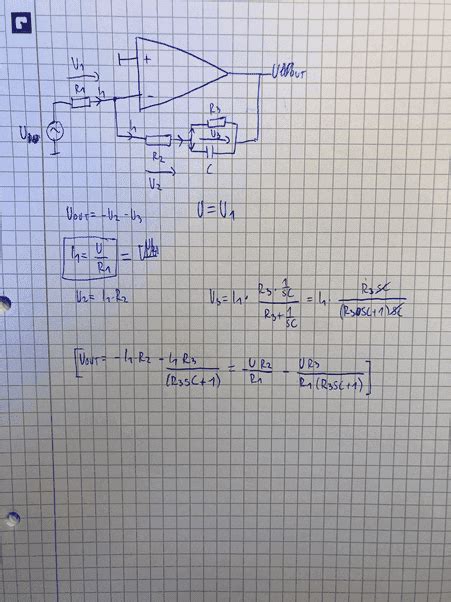 U1
R1 I1
+
-
UOUT
R3
U3
I1
R2
C
U2
UOUT = -U2 - U3
U = U1
I1 = U/R1 =
U2 = I1 · R2
U3 = I1 · (R3 · 1/SC)/(R3 + 1/SC) = I1 · (R3 SC)/((R3SC+1)SC)
[UOUT = -I1 · R2 - (I1 R3)/(R3SC+1) = -(U R2)/R1 - (U R3)/(R1(R3SC+1))]